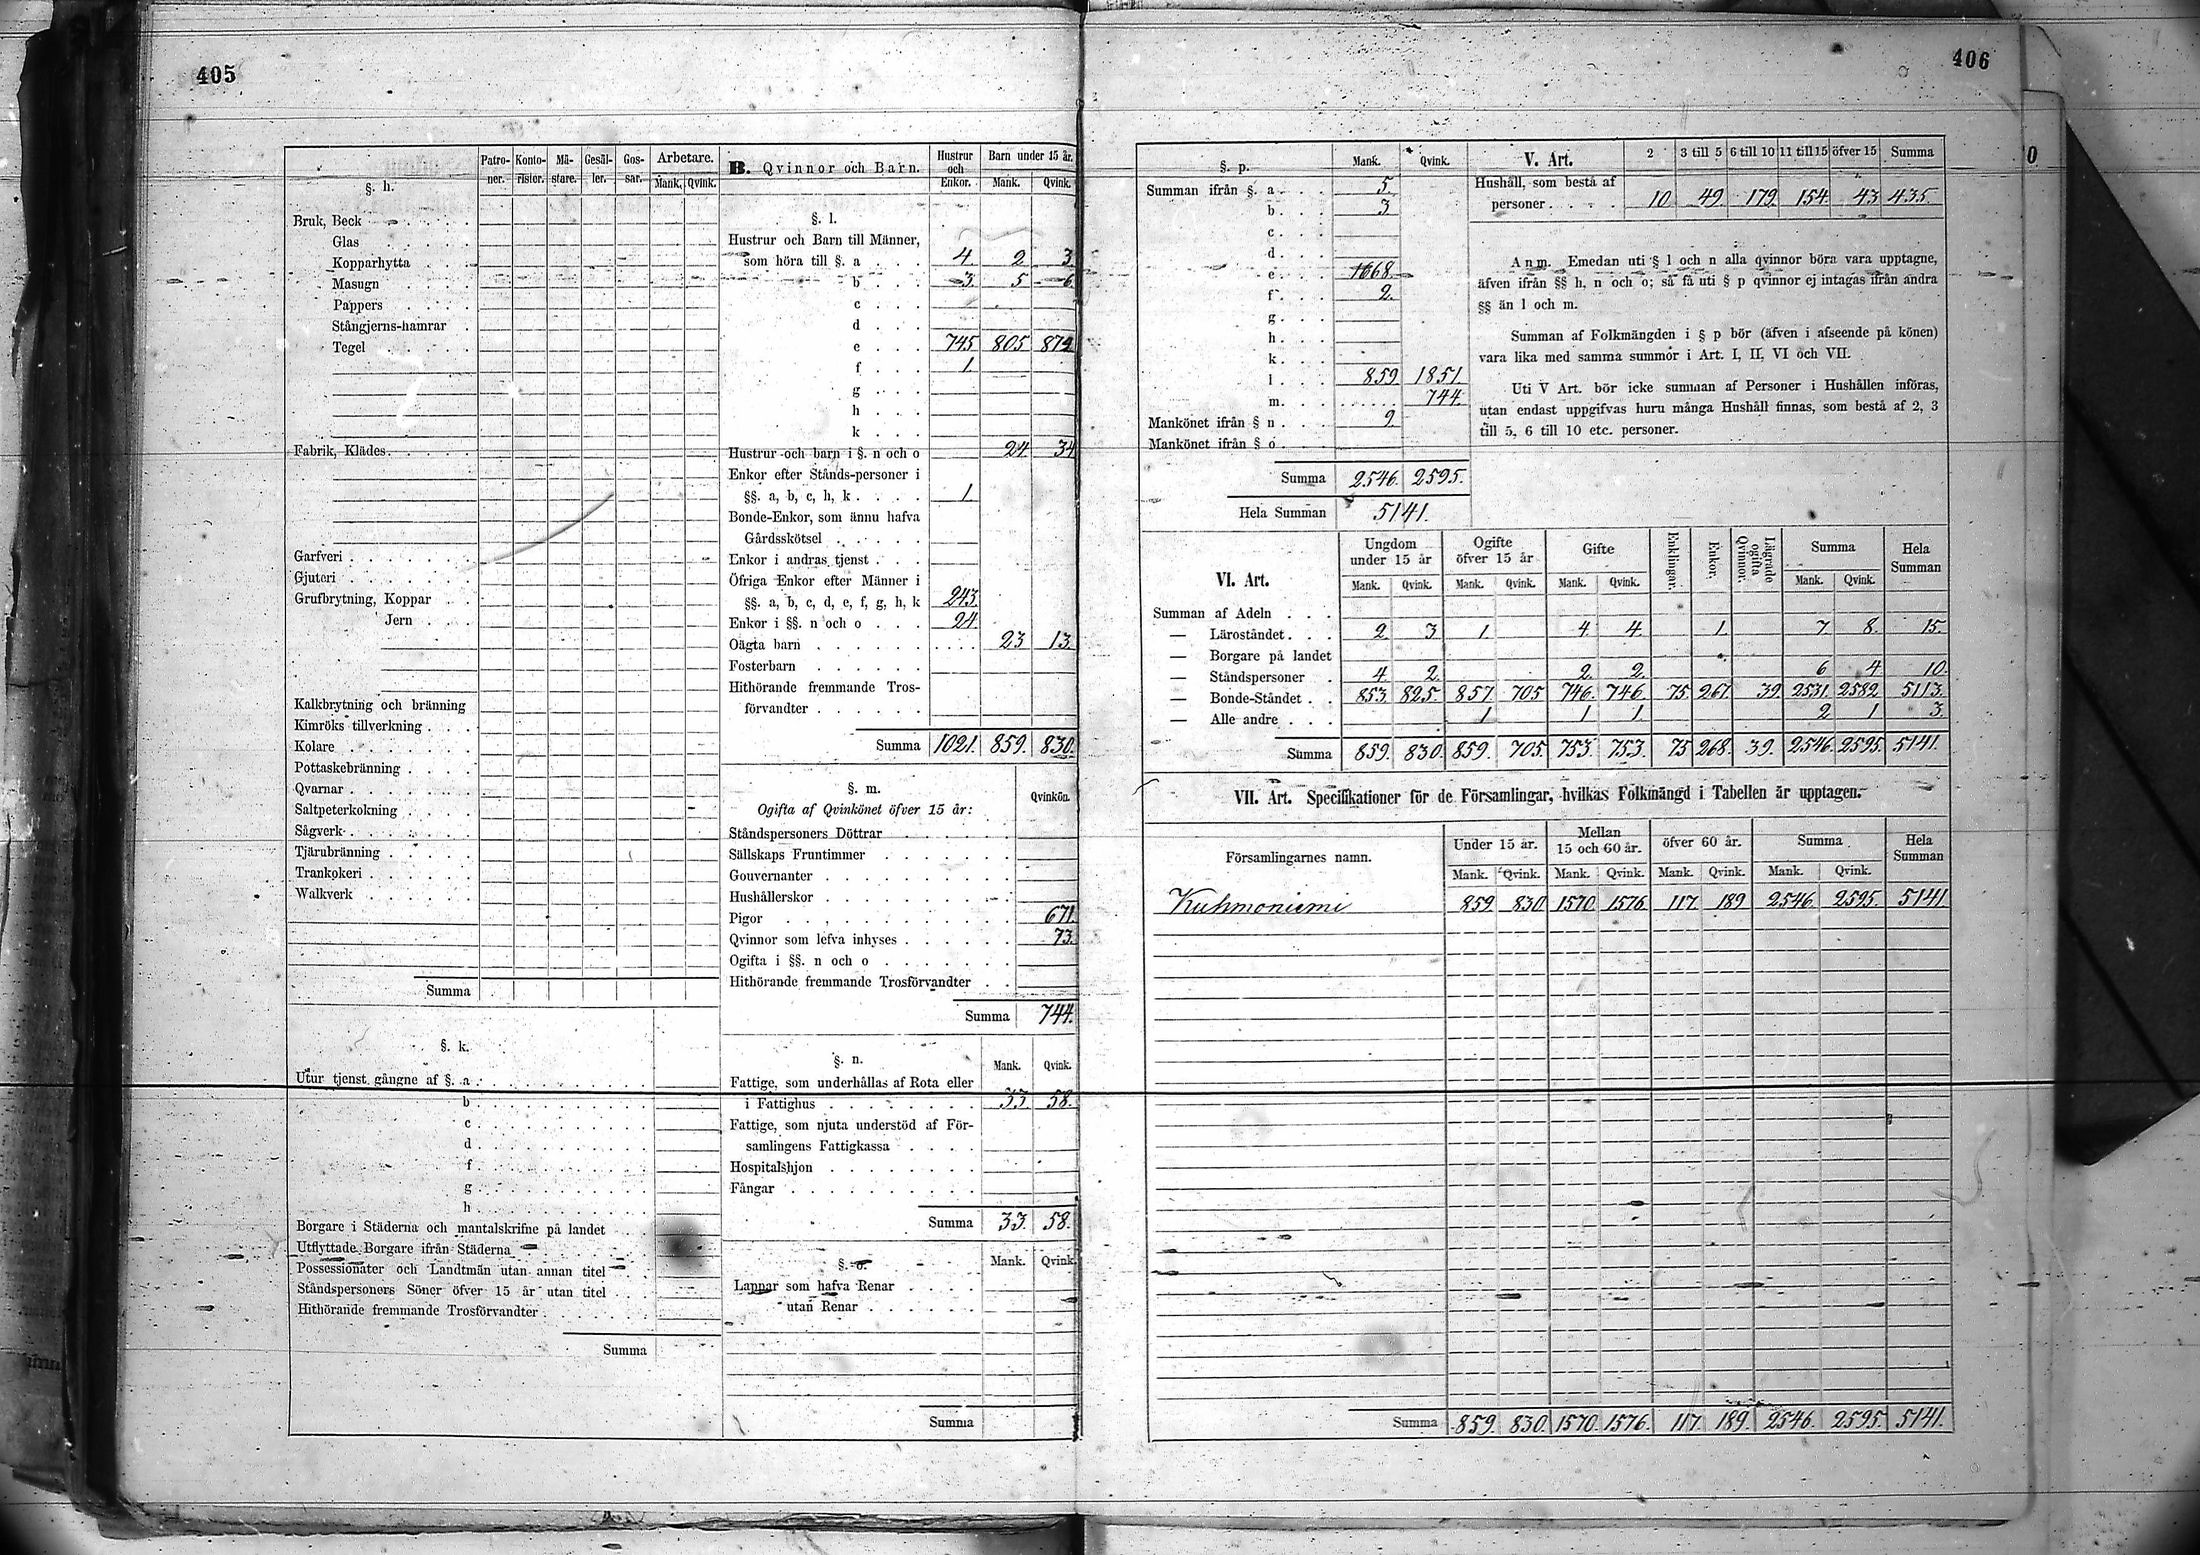 405
§. h. Patro-ner. Konto-rister. Mä-stare. Gesäl-ler. Gos-sar. Arbetare. Mank. Qvink.
Bruk, Beck
Glas
Kopparhytta
Masugn
Pappers
Stångjerns-hamrar
Tegel
Fabrik, Klädes
Garfveri
Gjuteri
Grufbrytning, Koppar
Jern
Kalkbrytning och bränning
Kimröks tillverkning
Kolare
Pottaskebränning
Qvarnar
Saltpeterkokning
Sågverk
Tjärubränning
Trankokeri
Walkverk
Summa
§. k.
Utur tjenst gångne af §. a
b
c
d
f
g
h
Borgare i Städerna och mantalskrifne på landet
Utflyttade Borgare ifrån Städerna
Possessionater och Landtmän utan annan titel
Ståndspersoners Söner öfver 15 år utan titel
Hithörande fremmande Trosförvandter
Summa
B. Qvinnor och Barn. Hustrur och Enkor. Barn under 15 år. Mank. Qvink.
§. l.
Hustrur och Barn till Männer,
som höra till §. a 4 2 3
b 3 5 6
c
d
e 745 805
f 1
g
h
k
Hustrur och barn i §. n och o 24 34
Enkor efter Stånds-personer i
§§. a, b, c, h, k 1
Bonde-Enkor, som ännu hafva
Gårdsskötsel
Enkor i andras tjenst
Öfriga Enkor efter Männer i
§§. a, b, c, d, e, f, g, h, k 243.
Enkor i §§. n och o 24.
Oägta barn 23 13.
Fosterbarn
Hithörande fremmande Tros-
förvandter
Summa 1021. 859. 830.
§. m.
Qvinkön.
Ogifta af Qvinkönet öfver 15 år:
Ståndspersoners Döttrar
Sällskaps Fruntimmer
Gouvernanter
Hushållerskor
Pigor 671.
Qvinnor som lefva inhyses 73.
Ogifta i §§. n och o
Hithörande fremmande Trosförvandter
Summa 744.
§. n. Mank. Qvink.
Fattige, som underhållas af Rota eller
i Fattighus 33 58.
Fattige, som njuta understöd af För-
samlingens Fattigkassa
Hospitalshjon
Fångar
Summa 33. 58.
§. o. Mank. Qvink.
Lappar som hafva Renar
utan Renar
Summa
406
§. p. Mank. Qvink.
Summan ifrån §. a 5.
b. 3
c.
d.
e. 1668.
f. 2.
g.
h.
k.
l 859 1851.
m. 744.
Mankönet ifrån § n 9
Mankönet ifrån § o
Summa 2546. 2595.
Hela Summan 5141.
V. Art. 2 3 till 5 6 till 10 11 till 15 öfver 15 Summa
Hushåll, som bestå af
personer 10 49. 179. 154. 43 435.
Anm. Emedan uti § l och n alla qvinnor böra vara upptagne,
äfven ifrån §§ h, n och o; så få uti § p qvinnor ej intagas ifrån andra
§§ än l och m.
Summan af Folkmängden i § p bör (äfven i afseende på könen)
vara lika med samma summor i Art. I, II, VI och VII.
Uti V Art. bör icke summan af Personer i Hushållen införas,
utan endast uppgifvas huru många Hushåll finnas, som bestå af 2, 3
till 5, 6 till 10 etc. personer.
VI. Art. Ungdom under 15 år Ogifte öfver 15 år Gifte Enklingar. Enkor. Lägrade ogifta Qvinnor. Summa Hela Summan
Mank. Qvink. Mank. Qvink. Mank. Qvink. Mank. Qvink.
Summan af Adeln
— Läroståndet 2 3 1 4 4 1. 7. 8. 15.
— Borgare på landet
— Ståndspersoner 4 2 2. 2. 6 4 10.
— Bonde-Ståndet 853. 825. 857. 705 746. 746. 75 267. 39 2531. 2582 5113.
— Alle andre 1 1 1. 2 1 3.
Summa 859. 830. 859. 705 753. 753. 75 268. 39. 2546. 2595. 5141.
VII. Art. Specifikationer för de Församlingar, hvilkas Folkmängd i Tabellen är upptagen.
Församlingarnes namn. Under 15 år. Mellan 15 och 60 år. öfver 60 år. Summa Hela Summan
Mank. Qvink. Mank. Qvink. Mank. Qvink. Mank. Qvink.
Kuhmoniemi 859. 830 1570 1576. 117. 189 2546 2595. 5141
Summa 859. 830. 1570. 1576. 117. 189. 2546. 2595. 5141.